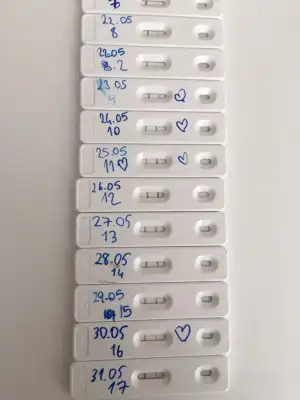 22.05
8
22.05
8.2
23.05
9
24.05
10
25.05
11
26.05
12
27.05
13
28.05
14
29.05
15
30.05
16
31.05
17